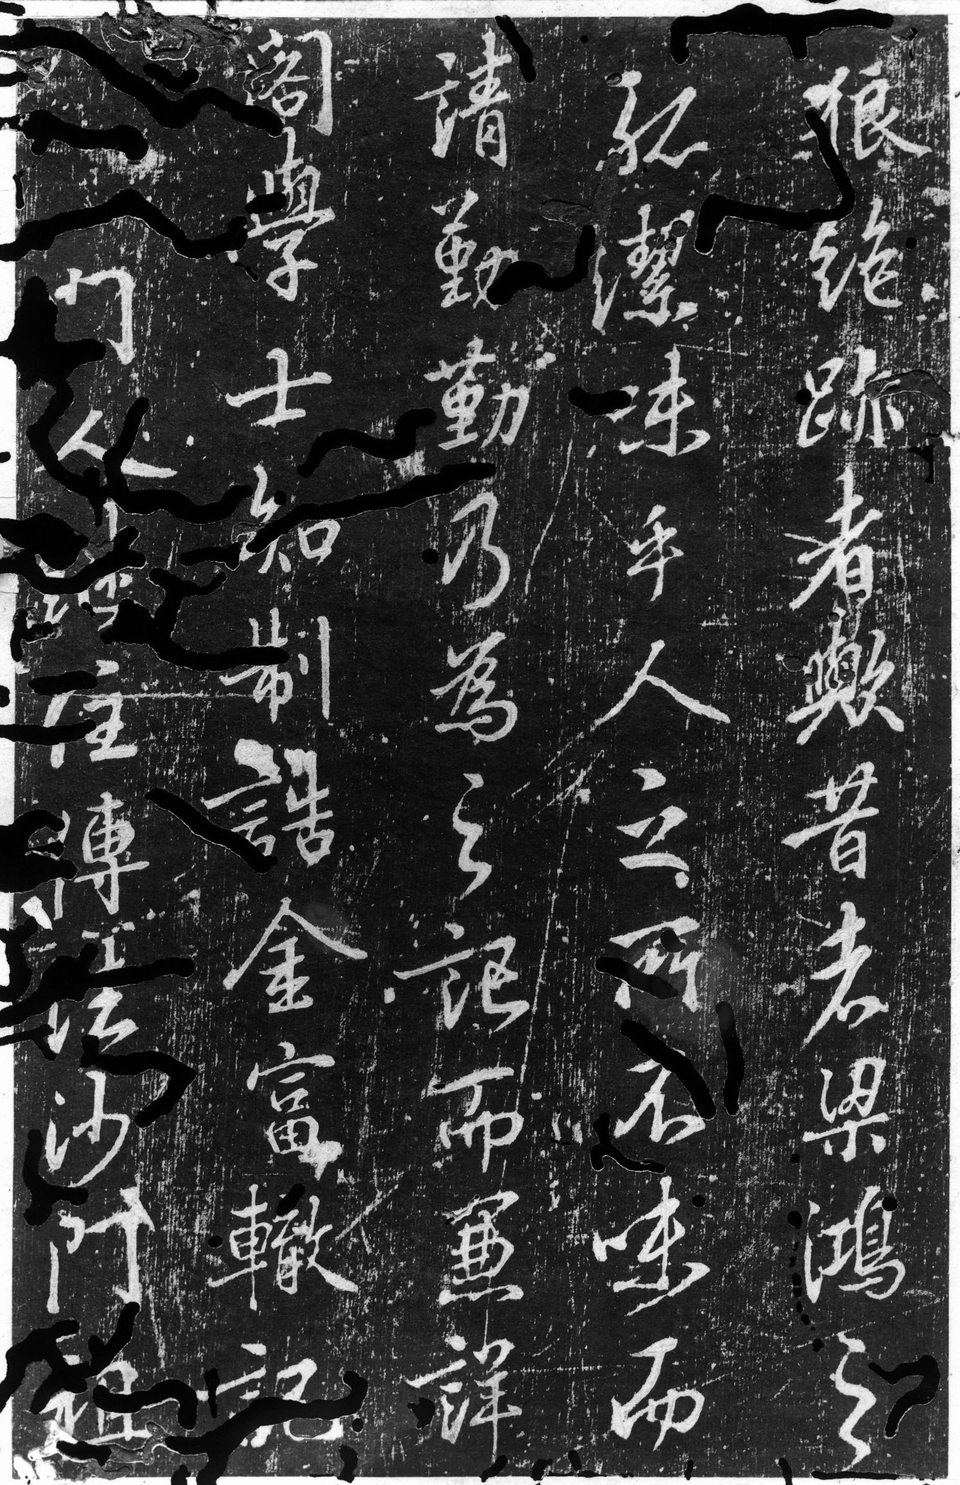 狼絶跡者歟昔者梁鴻之
潔味乎人立所不味而
請勤勤乃為之記而兼詳
閣學士知制誥金富轍記
門人 住傳法沙門祖